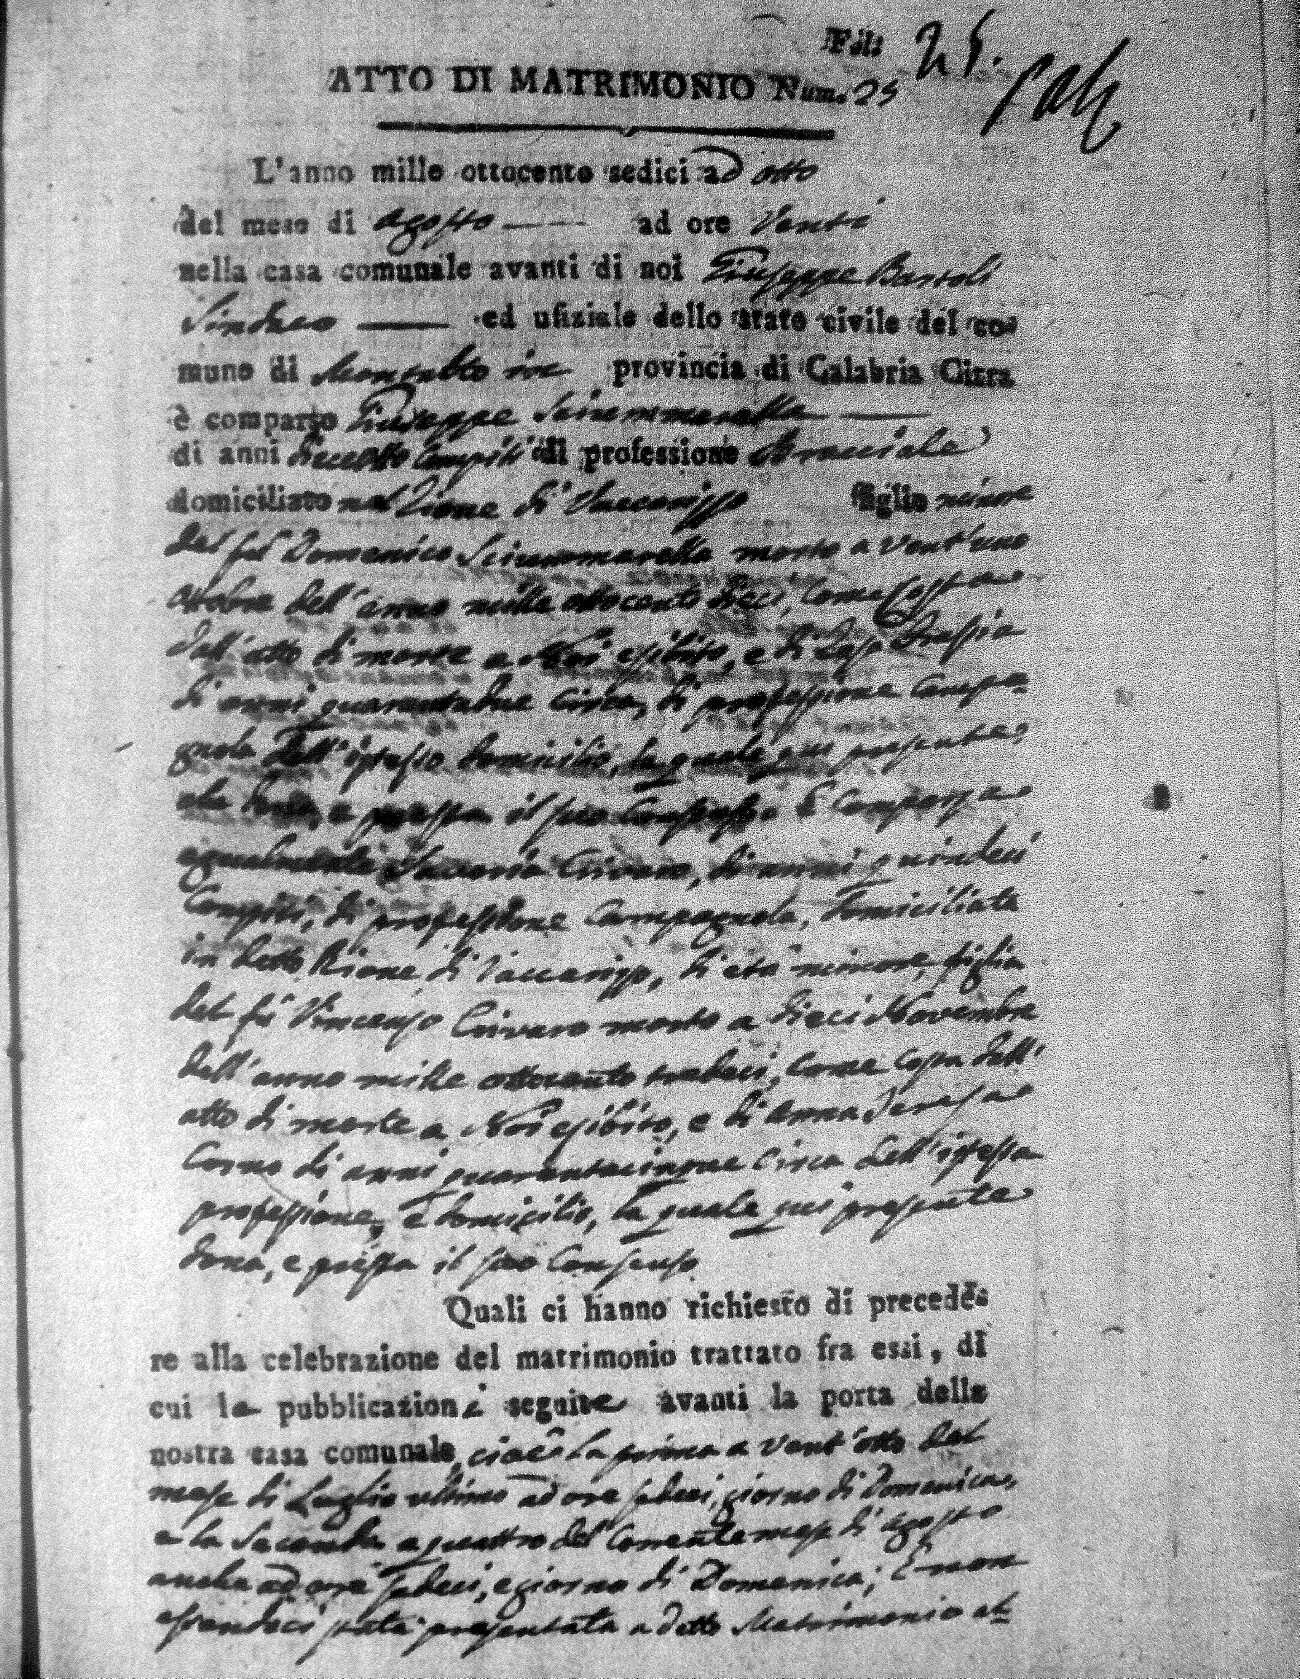 Fol: 25.
ATTO DI MATRIMONIO Num. 25
L'anno mille ottocento sedici ad otto
del mese di agosto — ad ore Venti
nella casa comunale avanti di noi Giuseppe Bartoli
Sindaco — ed ufiziale dello stato civile del co-
mune di Montalto in provincia di Calabria Citra
è comparso Giuseppe Sciammarella —
di anni dieceotto compiti di professione Bracciale
domiciliato nel Rione di Vaccarizzo figlio minore
del fù Domenico Sciammarella morto a vent'uno
ottobre dell'anno mille ottocento dieci, come costa
dall'atto di morte a Noi esibito, e di
di anni quarantadue circa, di professione campa-
gnola dell'istesso domicilio, la quale qui presente
da, e presta il suo consenso. E comparsa
egualmente Saveria Crivaro, di anni quindeci
compiti, di professione campagnola, domiciliata
in detto Rione di Vaccarizzo, di età minore, figlia
del fù Vincenzo Crivaro morto a dieci Novembre
dell'anno mille ottocento tredeci, come copia dell'
atto di morte a Noi esibito, e di Anna Teresa
Corno di anni quarantacinque circa dell'istessa
professione, e domicilio, la quale qui presente
dona, e presta il suo consenso
Quali ci hanno richiesto di precede-
re alla celebrazione del matrimonio trattato fra essi, di
cui le pubblicazioni seguite avanti la porta della
nostra casa comunale, cioè la prima a vent'otto del
mese di Luglio ultimo ad ore sedeci, giorno di Domenica,
e la seconda a quattro del corrente mese di agosto
anche ad ore sedeci, e giorno di Domenica; E non
essendoci stata presentata a detto Matrimonio al-